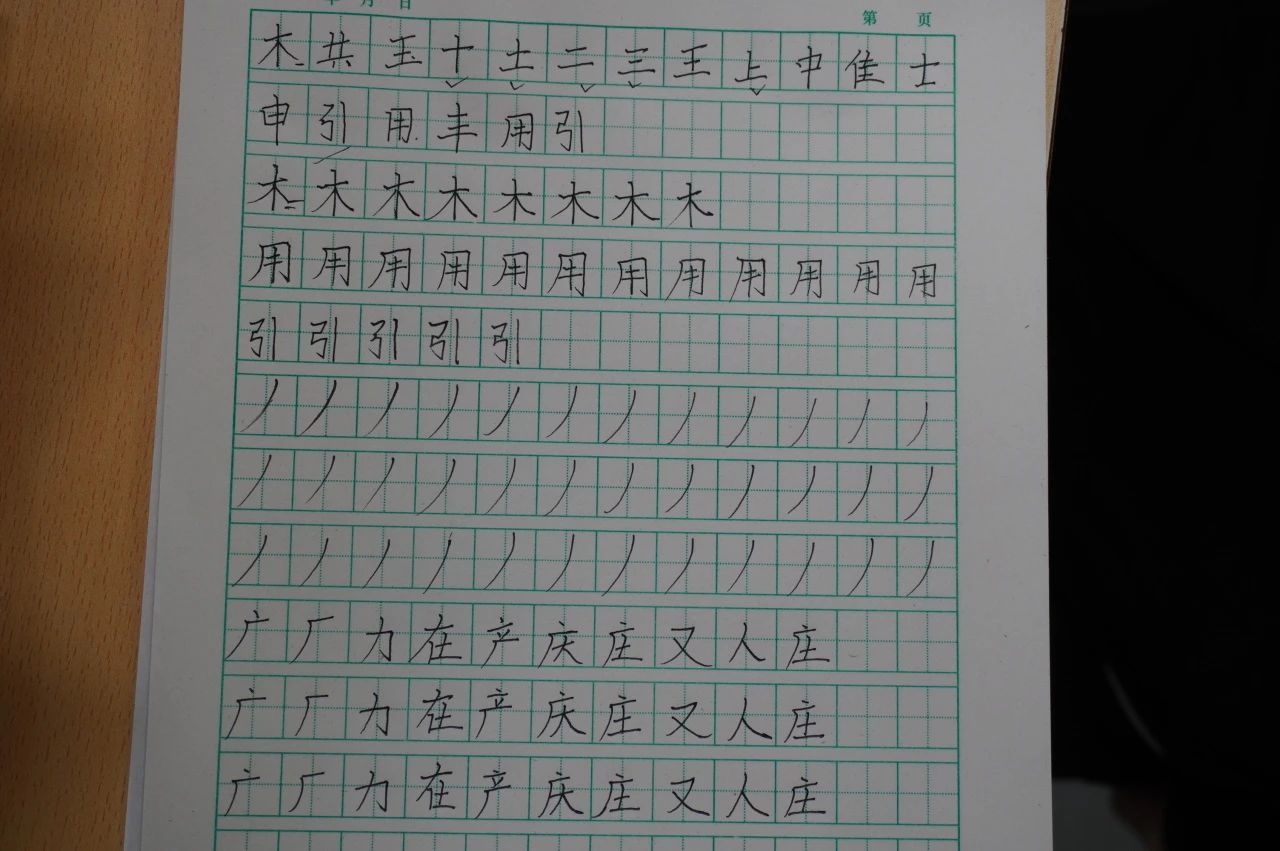 年 月 日 第 页
木 共 玉 十 土 二 三 王 上 中 隹 士
申 引 用 丰 用 引
木 木 木 木 木 木 木 木
用 用 用 用 用 用 用 用 用 用 用 用
引 引 引 引 引
丿 丿 丿 丿 丿 丿 丿 丿 丿 丿 丿 丿
丿 丿 丿 丿 丿 丿 丿 丿 丿 丿 丿 丿
丿 丿 丿 丿 丿 丿 丿 丿 丿 丿 丿 丿
广 厂 力 在 产 庆 庄 又 人 庄
广 厂 力 在 产 庆 庄 又 人 庄
广 厂 力 在 产 庆 庄 又 人 庄